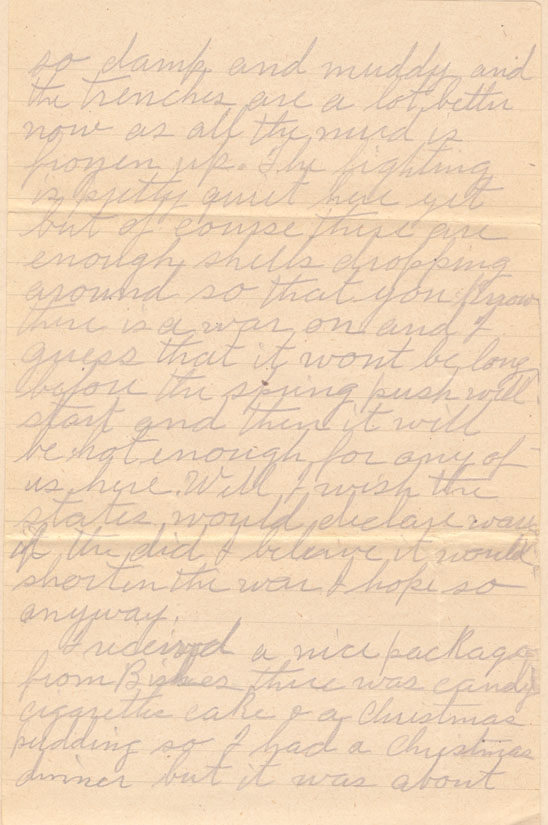 so damp and muddy and
the trenches are a lot better
now as all the mud is
frozen up. The fighting
is pretty quiet here yet
but of course there are
enough shells dropping
around so that you know
there is a war on and I
guess that it wont be long
before the spring push will
start and then it will
be hot enough for any of
us here. Well I wish the
states would declare war
if the did I beleive it would
shorten the war I hope so
anyway.
I received a nice package
from there was candy
cigarette cake & a Christmas
pudding so I had a Christmas
dinner but it was about